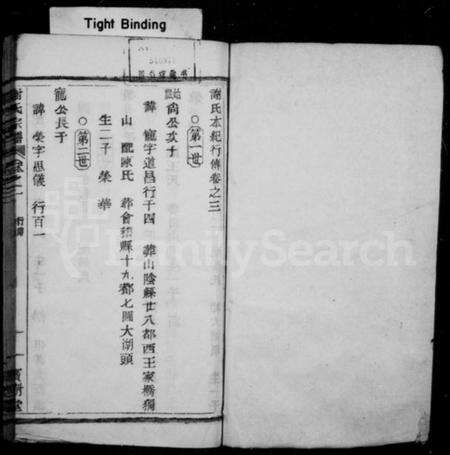 Tight Binding
謝氏本紀行傳卷之三
第一世
始監尙公次子
諱寵字道昌行千四 葬山陰縣廿八都西王家嶴獨
山 配陳氏 葬會稽縣十九都七圖大湖頭
生二子 榮 華
第二世
寵公長子
諱榮字思儀 行百一
謝氏宗譜 卷之三 行傳
FamilySearch